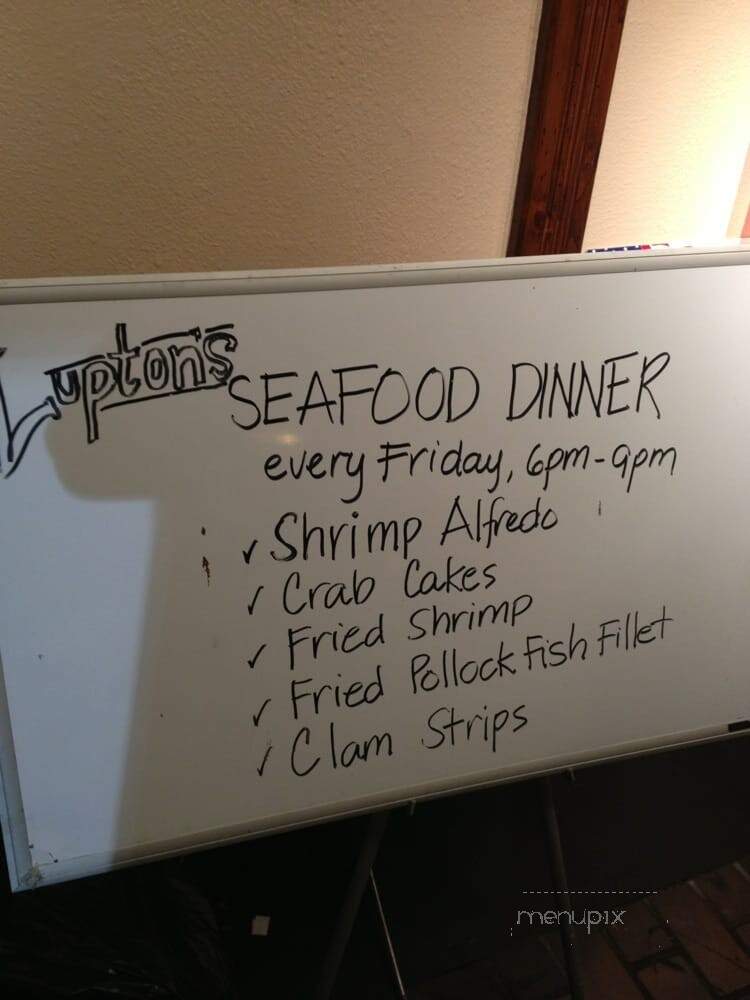 Lupton's
SEAFOOD DINNER
every Friday, 6pm-9pm
✓ Shrimp Alfredo
✓ Crab Cakes
✓ Fried Shrimp
✓ Fried Pollock Fish Fillet
✓ Clam Strips
menupix